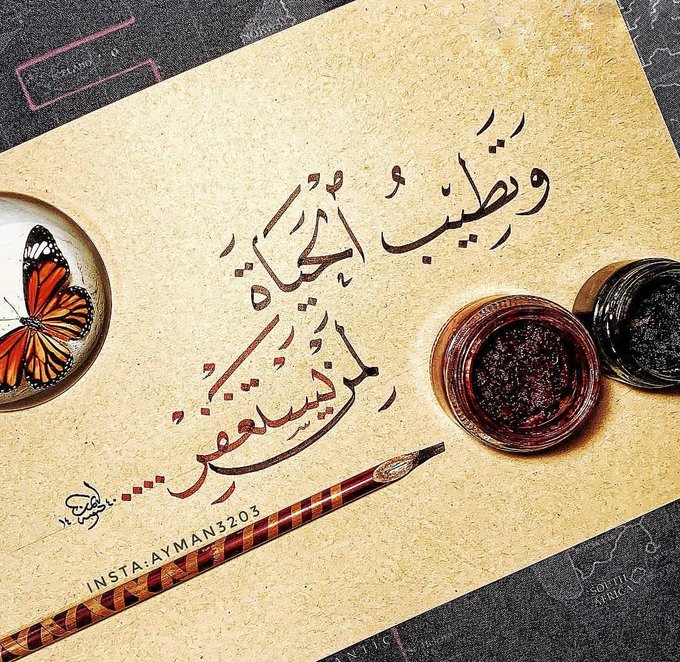 وَتَطِيبُ
الْحَيَاةُ
لِمَنْ يَسْتَغْفِرْ.....
INSTA:AYMAN3203
SOUTH
AFRICA